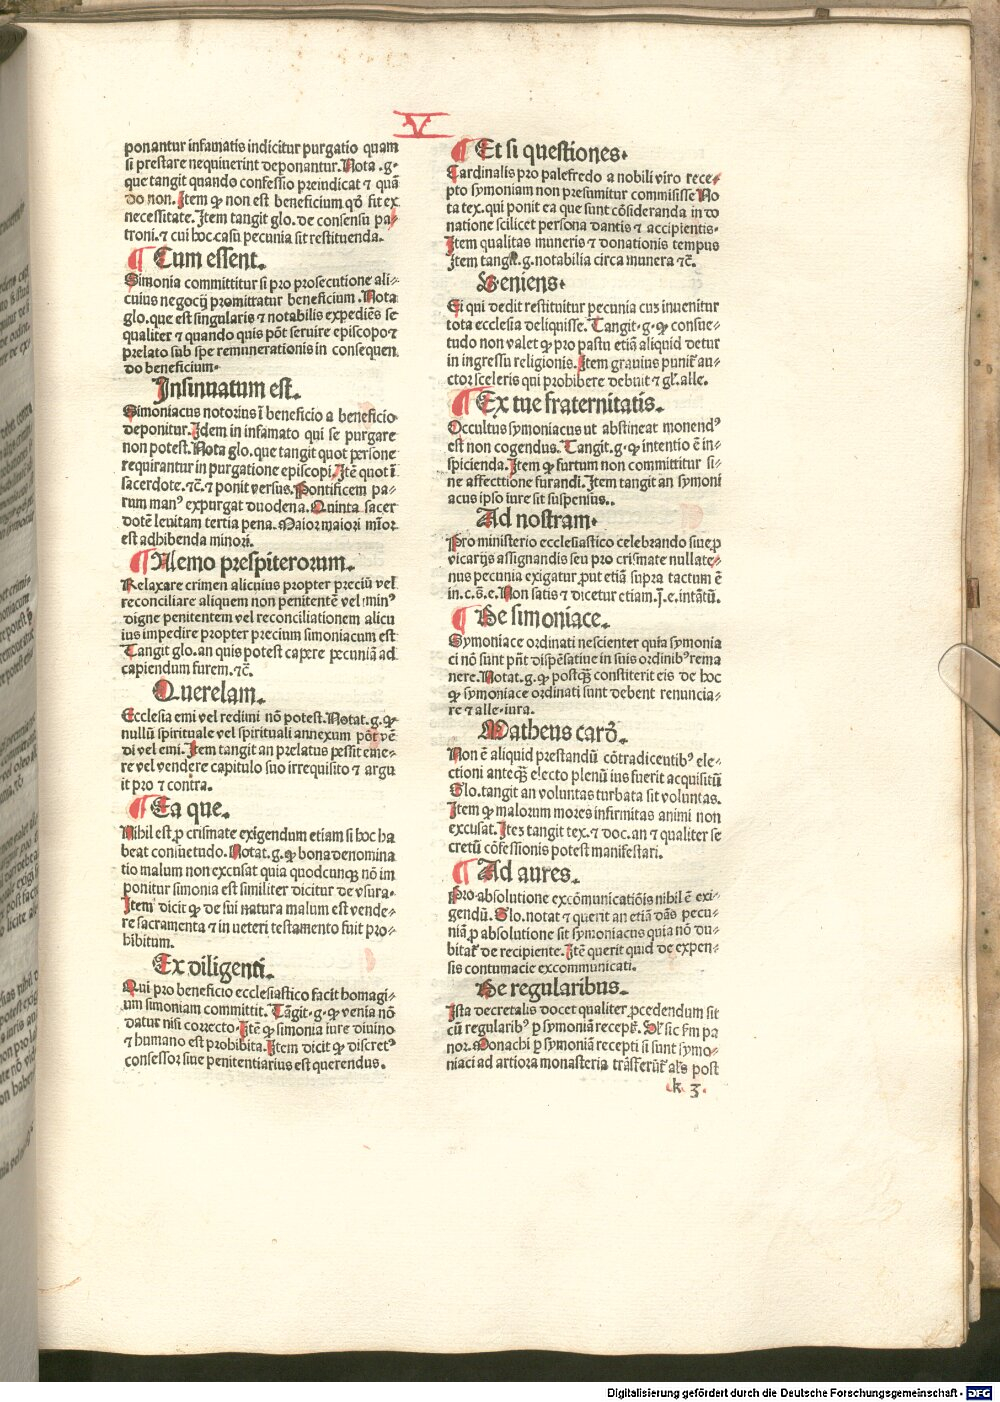 V
ponantur infamatis indicitur purgatio quam
si prestare nequiuerint deponantur. Nota .g.
que tangit quando confessio preiudicat ⁊ quā
do non. Item ꝙ non est beneficium qđ fit ex
necessitate. Item tangit glo. de consensu pa⸗
troni. ⁊ cui hoc casu pecunia sit restituenda.
¶ Cum essent.
Simonia committitur si pro prosecutione ali⸗
cuius negocij promittatur beneficium. Nota
glo. que est singularis ⁊ notabilis expediēs se
qualiter ⁊ quando quis pōt seruire episcopo ⁊
prelato sub spe remunerationis in consequen
do beneficium.
Insinuatum est.
Simoniacus notorius ī beneficio a beneficio
deponitur. Idem in infamato qui se purgare
non potest. Nota glo. que tangit quot persone
requirantur in purgatione episcopi. Itē quot ī
sacerdote. ⁊c̄. ⁊ ponit versus. Pontificem pa⸗
rum manꝰ expurgat duodena. Quinta sacer
dotē leuitam tertia pena. Maior maiori mīor
est adhibenda minori.
¶ Nemo prespiterorum.
Relaxare crimen alicuius propter preciū vel
reconciliare aliquem non penitentē vel minꝰ
digne penitentem vel reconciliationem alicu
ius impedire propter precium simoniacum est
Tangit glo. an quis potest capere pecuniā ad
capiendum furem. ⁊c̄.
Querelam.
Ecclesia emi vel redimi nō potest. Notat .g. ꝙ
nullū spirituale vel spirituali annexum pōt vē
di vel emi. Item tangit an prelatus possit eme⸗
re vel vendere capitulo suo irrequisito ⁊ argu
it pro ⁊ contra.
¶ Ea que.
Nihil est ꝓ crismate exigendum etiam si hoc ha
beat consuetudo. Notat .g. ꝙ bona denomina
tio malum non excusat quia quodcunqꝫ nō im
ponitur simonia est similiter dicitur de vsura.
Item dicit ꝙ de sui natura malum est vende⸗
re sacramenta ⁊ in ueteri testamento fuit pro⸗
hibitum.
Ex diligenti.
Qui pro beneficio ecclesiastico facit homagi⸗
um simoniam committit. Tāgit .g. ꝙ venia nō
datur nisi correcto. Itē ꝙ simonia iure diuino
⁊ humano est prohibita. Item dicit ꝙ discretꝰ
confessor siue penitentiarius est querendus.
¶ Et si questiones.
Cardinalis pro palefredo a nobili viro rece⸗
pto symoniam non presumitur commisisse No
ta tex. qui ponit ea que sunt cōsideranda in do
natione scilicet persona dantis ⁊ accipientis.
Item qualitas muneris ⁊ donationis tempus
Item tangit .g. notabilia circa munera ⁊c̄.
Veniens.
Ei qui dedit restituitur pecunia cuꝫ inuenitur
tota ecclesia deliquisse. Tangit .g. ꝙ consue⸗
tudo non valet ꝙ pro pastu etiā aliquid detur
in ingressu religionis. Item grauius punit̄ au⸗
ctor sceleris qui prohibere debuit ⁊ gl̄. alle.
¶ Ex tue fraternitatis.
Occultus symoniacus ut abstineat monendꝰ
est non cogendus. Tangit .g. ꝙ intentio ē in⸗
spicienda. Item ꝙ furtum non committitur si⸗
ne affecttione furandi. Item tangit an symoni
acus ipso iure sit suspensus..
Ad nostram.
Pro ministerio ecclesiastico celebrando siue ꝓ
vicarijs assignandis seu pro crismate nullate⸗
nus pecunia exigatur ꝓut etiā supra tactum ē
in. c. s. e. Non satis ⁊ dicetur etiam. j. e. intātū.
¶ De simoniace.
Symoniace ordinati nescienter quia symonia
ci nō sunt pn̄t dispēsatiue in suis ordinibꝰ rema
nere. Notat .g. ꝙ postqꝫ̄ constiterit eis de hoc
ꝙ symoniace ordinati sunt debent renuncia⸗
re ⁊ alle. iura.
Matheus card̄.
Non ē aliquid prestandū cōtradicentibꝰ ele⸗
ctioni anteqꝫ̄ electo plenū ius fuerit acquisitū
Glo. tangit an voluntas turbata sit voluntas.
Item ꝙ malorum mores infirmitas animi non
excusat. Iteꝫ tangit tex. ⁊ doc. an ⁊ qualiter se
cretū cōfessionis potest manifestari.
¶ Ad aures.
Pro absolutione excōmunicatiōis nihil ē exi⸗
gendū. Glo. notat ⁊ querit an etiā dās pecu⸗
niā ꝓ absolutione sit symoniacus quia nō du⸗
bitat̄ de recipiente. Itē querit quid de expen⸗
sis contumacie excommunicati.
De regularibus.
Ista decretalis docet qualiter ꝓcedendum sit
cū regularibꝰ ꝑ symoniā recept̄. sic fm̄ pa
nor. Monachi ꝑ symoniā recepti si sunt symo⸗
niaci ad artiora monasteria trāsferūt̄ al̄s post
k 3.
Digitalisierung gefördert durch die Deutsche Forschungsgemeinschaft - DFG